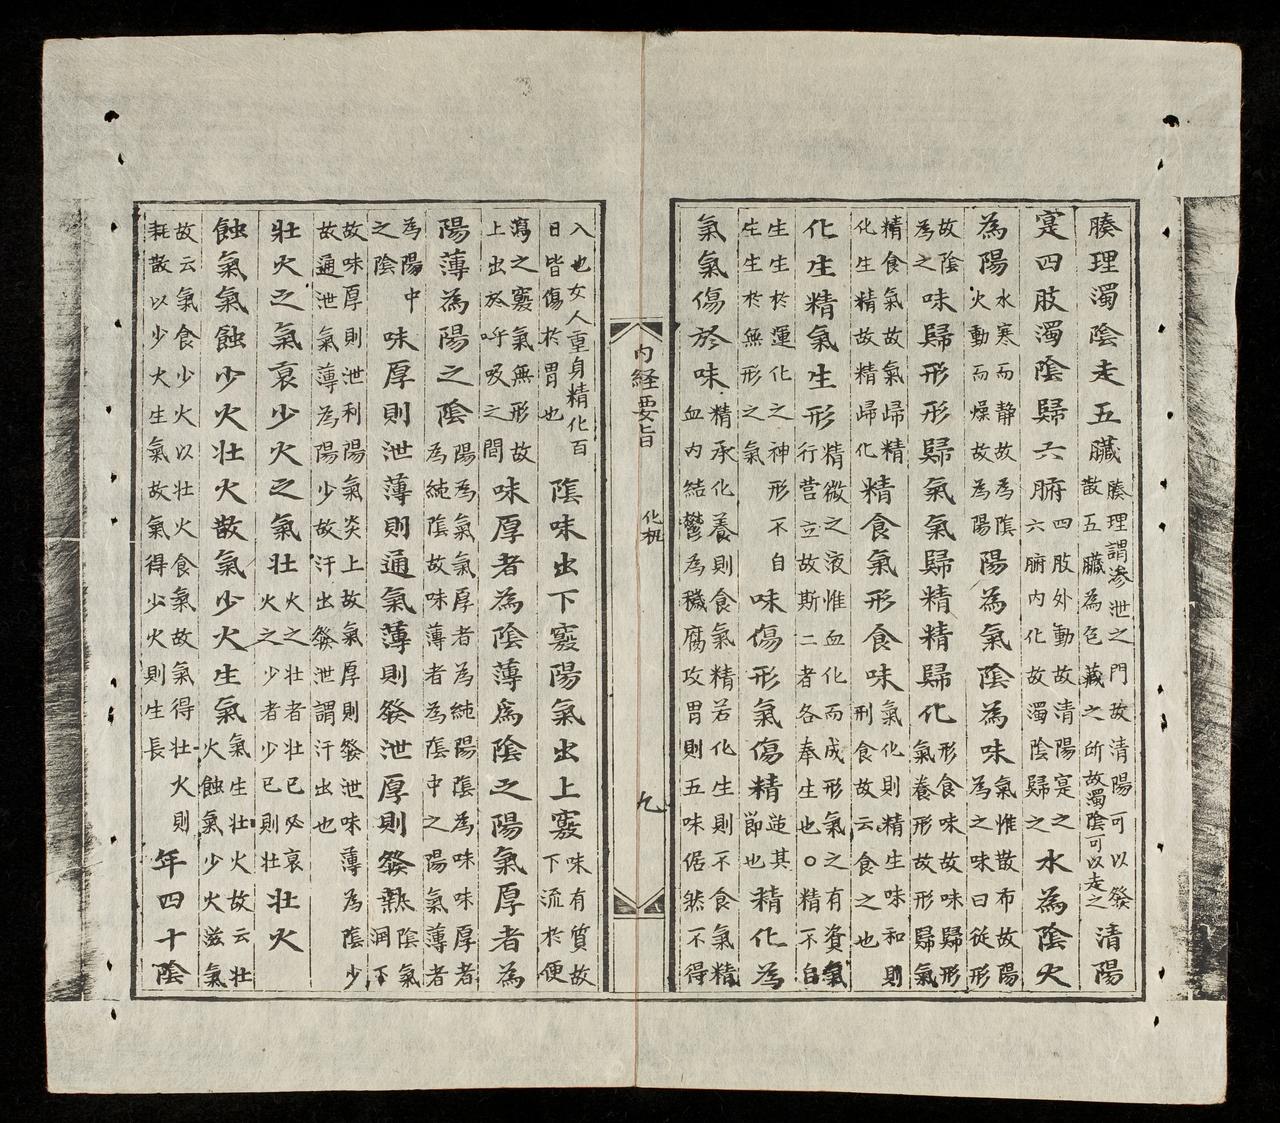 腠理濁陰走五臟腠理謂渗泄之門故清陽可以發散五臟為包藏之所故濁陰可以走之清陽
寔四肢濁陰歸六腑四肢外動故清陽寔之六腑内化故濁陰歸之水為陰火
為陽水寒而静故為陰火動而燥故為陽陽為氣陰為味氣惟散布故陽為之味曰從形
故陰為之味歸形形歸氣氣歸精精歸化形食味故味歸形氣養形故形歸氣
精食氣故氣歸精化生精故精歸化精食氣形食味氣化則精生味和則刑食故云食之也
化生精氣生形精微之液惟血化而成形氣之有資氣行营立故斯二者各奉生也○精不自
生生於運化之神形不自生生於無形之氣味傷形氣傷精造其節也精化為
氣氣傷於味精承化養則食氣精若化生則不食氣精血内結鬱為穢腐攻胃則五味倨然不得
内経要旨 化机 九
入也女人重身精化百日皆傷於胃也陰味出下竅陽氣出上竅味有質故下流於便
瀉之竅氣無形故上出於呼吸之間味厚者為陰薄為陰之陽氣厚者為
陽薄為陽之陰陽為氣氣厚者為純陽陰為味味厚者為純陰故味薄者為陰中之陽氣薄者
為陽中之陰味厚則泄薄則通氣薄則發泄厚則發熱陰氣潤下
故味厚則泄利陽氣炎上故氣厚則發泄味薄為陰少故通泄氣薄為陽少故汗出發泄謂汗出也
壮火之氣衰少火之氣壮火之壮者壮已必衰火之少者少已則壮壮火
蝕氣氣蝕少火壮火散氣少火生氣氣生壮火故云壮火蝕氣少火滋氣
故云氣食少火以壮火食氣故氣得壮火則耗散以少火生氣故氣得少火則生長年四十陰